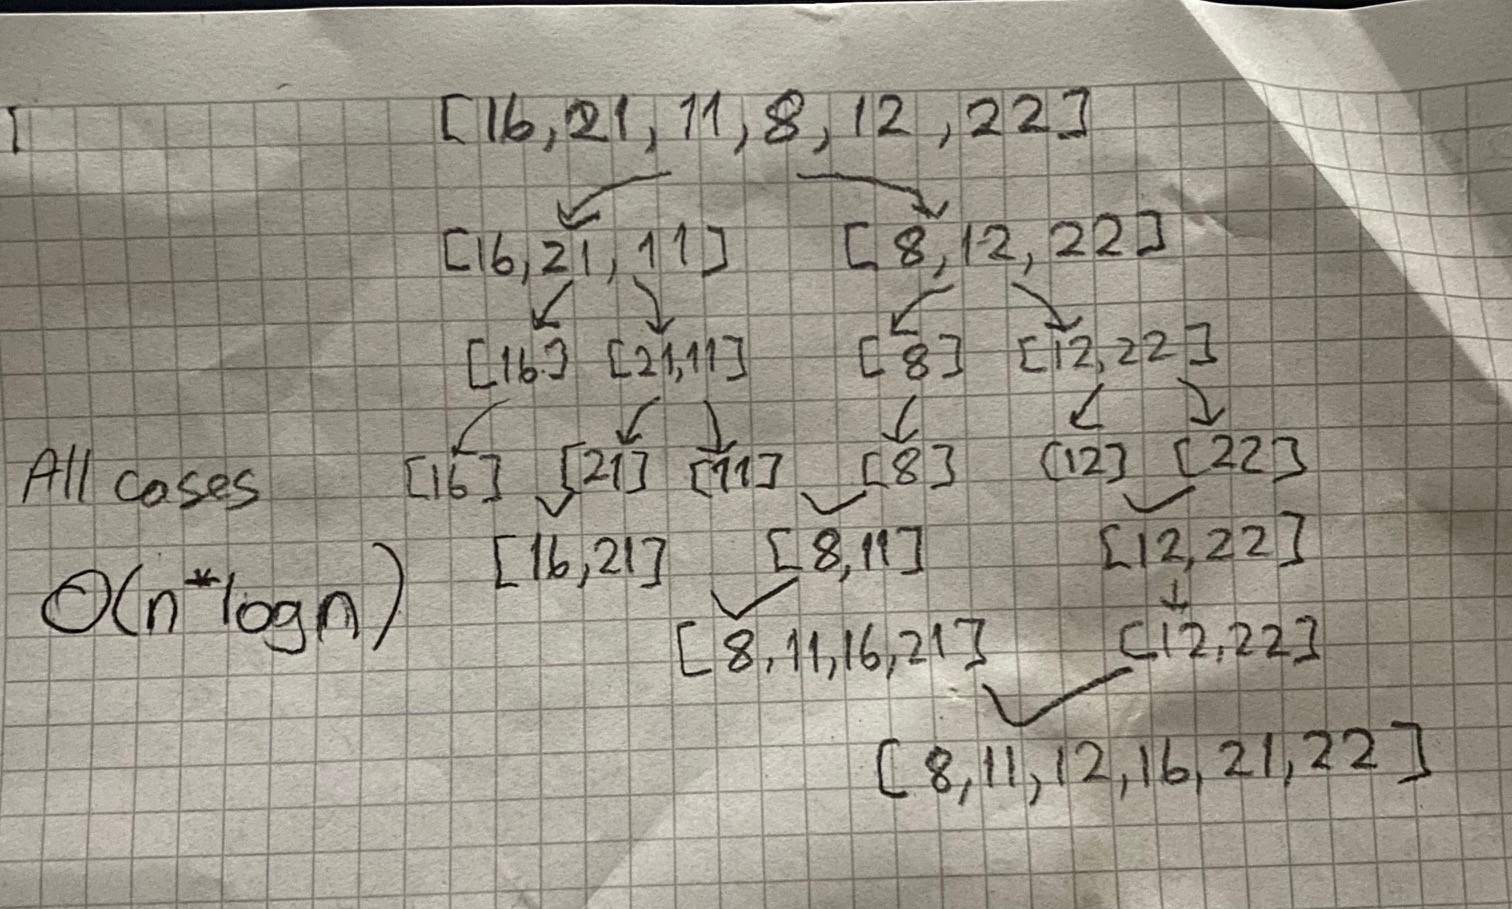 [16,21,11,8,12,22]
[16,21,11] [8,12,22]
[16] [21,11] [8] [12,22]
All cases [16] [21] [11] [8] [12] [22]
[16,21] [8,11] [12,22]
Θ(n*logn)
[8,11,16,21] [12,22]
[8,11,12,16,21,22]